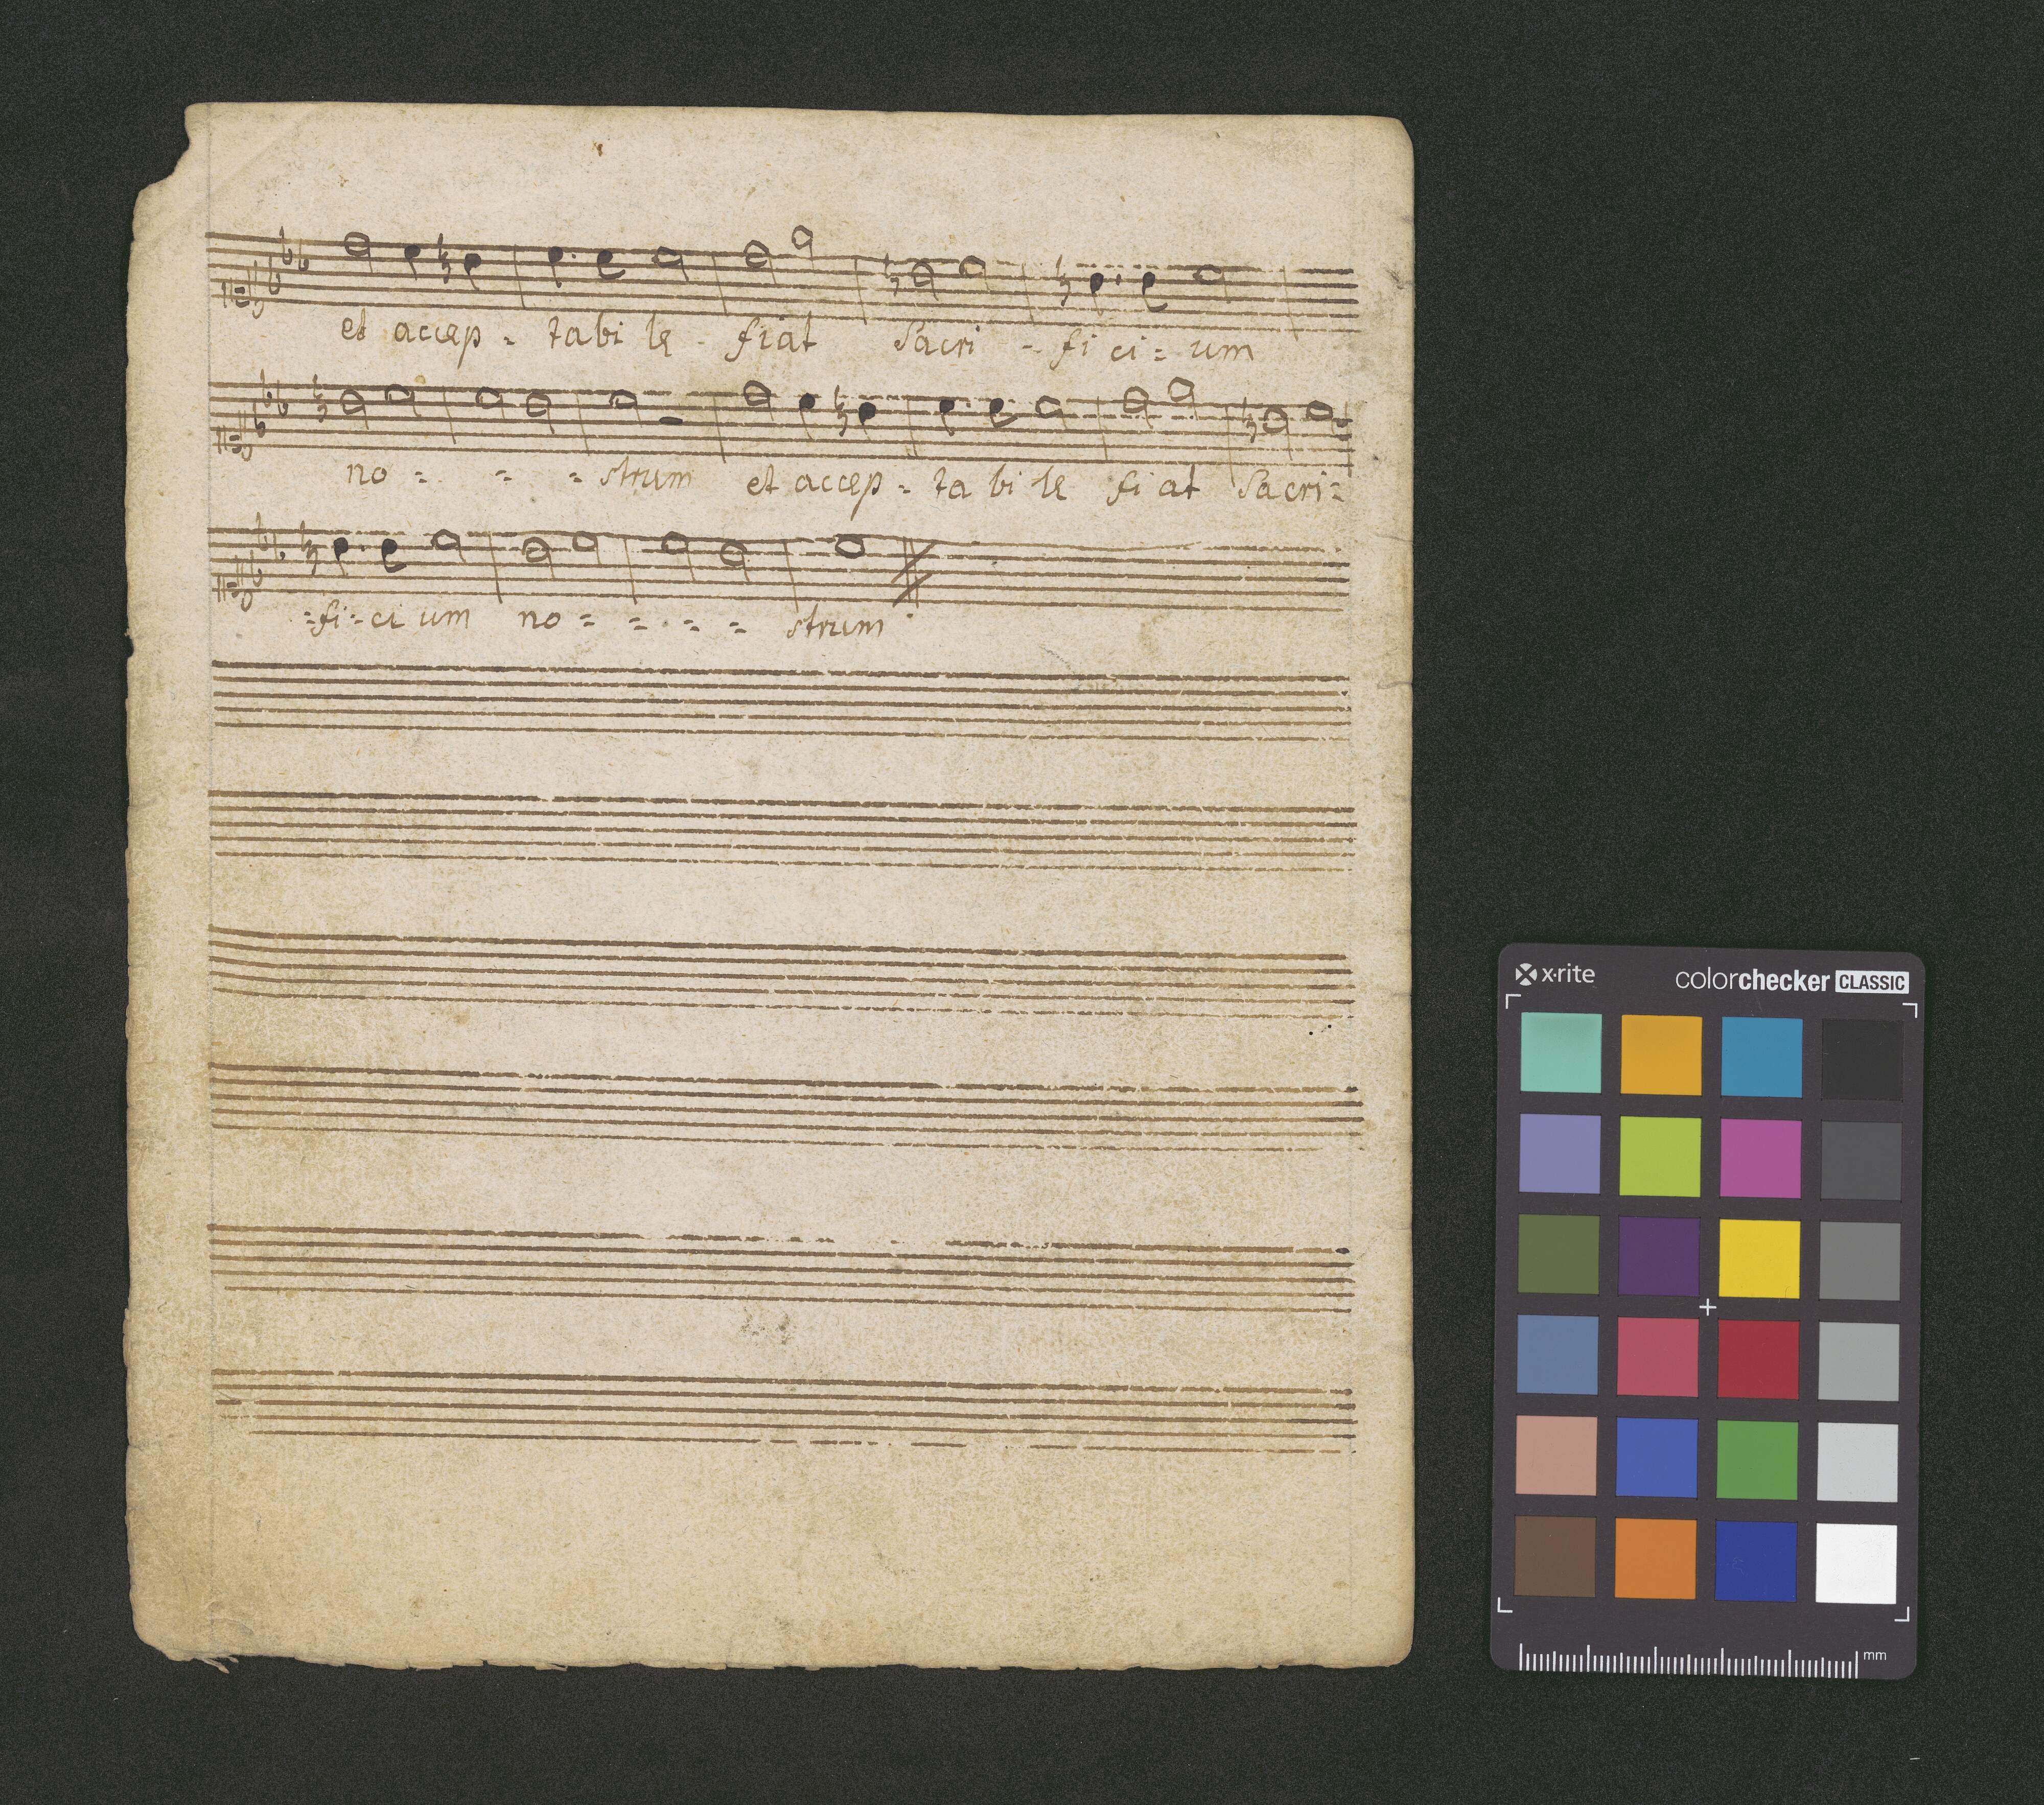 et accep - tabi le - fiat Sacri - fi ci - um
no - - - strum et accep - ta bi le fi at Sacri -
- fi - ci um no - - - - strum
x-rite colorchecker CLASSIC
mm